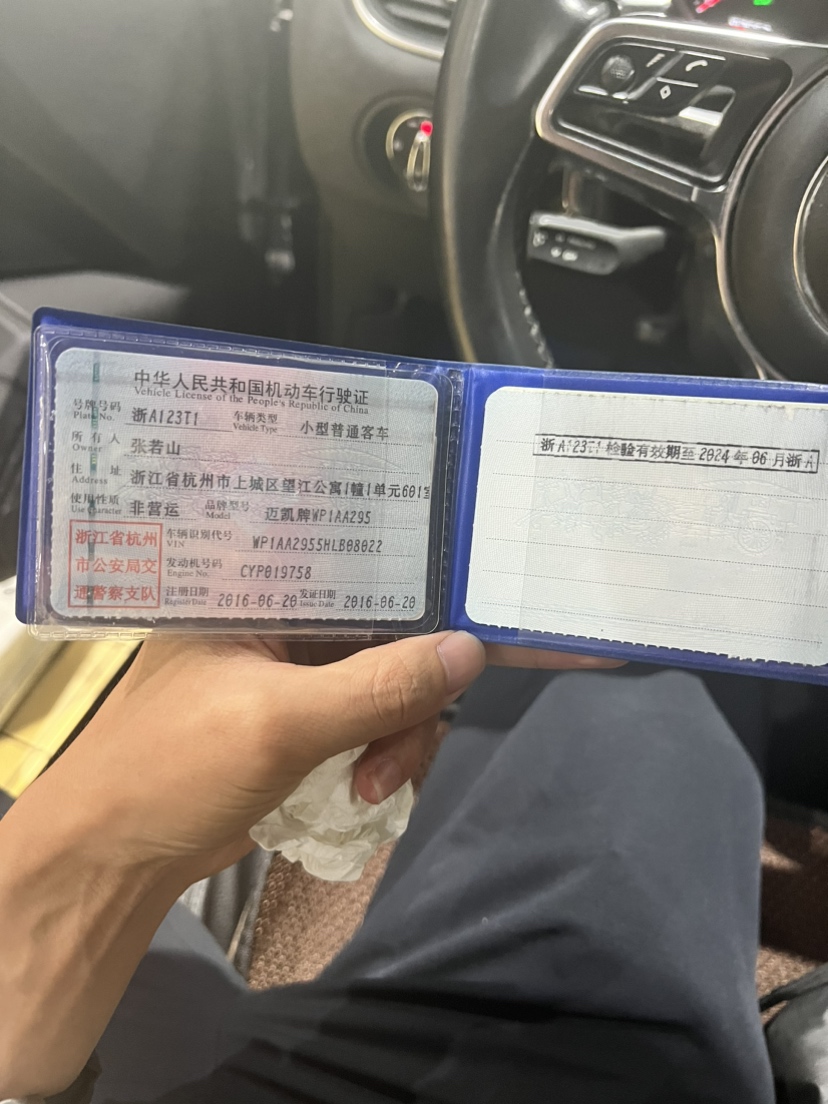 中华人民共和国机动车行驶证
Vehicle License of the People's Republic of China
号牌号码 浙A123T1 车辆类型 小型普通客车
Plate No. Vehicle Type
所有人 张若山
Owner
住址 浙江省杭州市上城区望江公寓1幢1单元601室
Address
使用性质 非营运 品牌型号 迈凯牌WP1AA295
Use Character Model
浙江省杭州
市公安局交
通警察支队
车辆识别代号 WP1AA2955HLB08022
VIN
发动机号码 CYP019758
Engine No.
注册日期 2016-06-20 发证日期 2016-06-20
Register Date Issue Date
检验有效期至2024年06月浙A